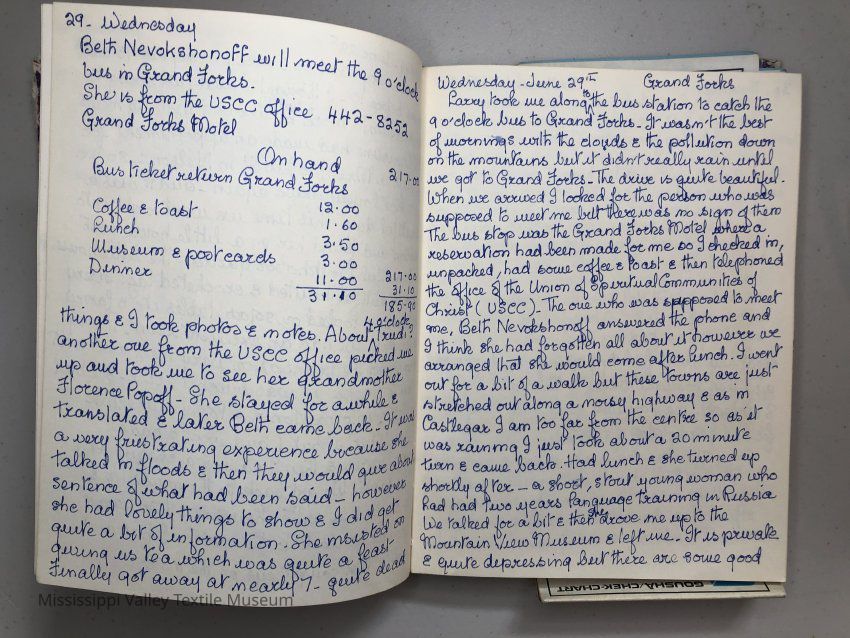 29 - Wednesday
Beth Nevokshonoff will meet the 9 o'clock
bus in Grand Forks.
She is from the USCC office 442-8252
Grand Forks Motel
On hand 217.00
Bus ticket return Grand Forks 12.00
Coffee & toast 1.60
Lunch 3.50
Museum & post cards 3.00
Dinner 11.00 217.00
31.10 31.10
185.90
things & I took photos & notes. About 4 o'clock Trudi?
another one from the USCC office picked me
up and took me to see her grandmother
Florence Popoff - She stayed for awhile &
translated & later Beth came back. It was
a very frustrating experience because she
talked in floods & then they would give about
sentence of what had been said - however
she had lovely things to show & I did get
quite a bit of information. She insisted on
giving us tea which was quite a feast
Finally got away at nearly 7 - quite dead
Wednesday - June 29th Grand Forks
Larry took me along to the bus station to catch the
9 o'clock bus to Grand Forks - It wasn't the best
of mornings with the clouds & the pollution down
on the mountains but it didn't really rain until
we got to Grand Forks - The drive is quite beautiful.
When we arrived I looked for the person who was
supposed to meet me but there was no sign of them
The bus stop was the Grand Forks Motel where a
reservation had been made for me so I checked in,
unpacked, had some coffee & toast & then telephoned
the office of the Union of Spiritual Communities of
Christ (USCC) - The one who was supposed to meet
me, Beth Nevokshonoff answered the phone and
I think she had forgotten all about it however we
arranged that she would come after lunch. I went
out for a bit of a walk but these towns are just
stretched out along a noisy highway & as in
Castlegar I am too far from the centre so as it
was raining I just took about a 20 minute
turn & came back. Had lunch & she turned up
shortly after - a short, stout young woman who
had had two years language training in Russia
We talked for a bit & then she drove me up to the
Mountain View Museum & left me. It is private
& quite depressing but there are some good
GOUSHA/CHEK-CHART
Mississippi Valley Textile Museum